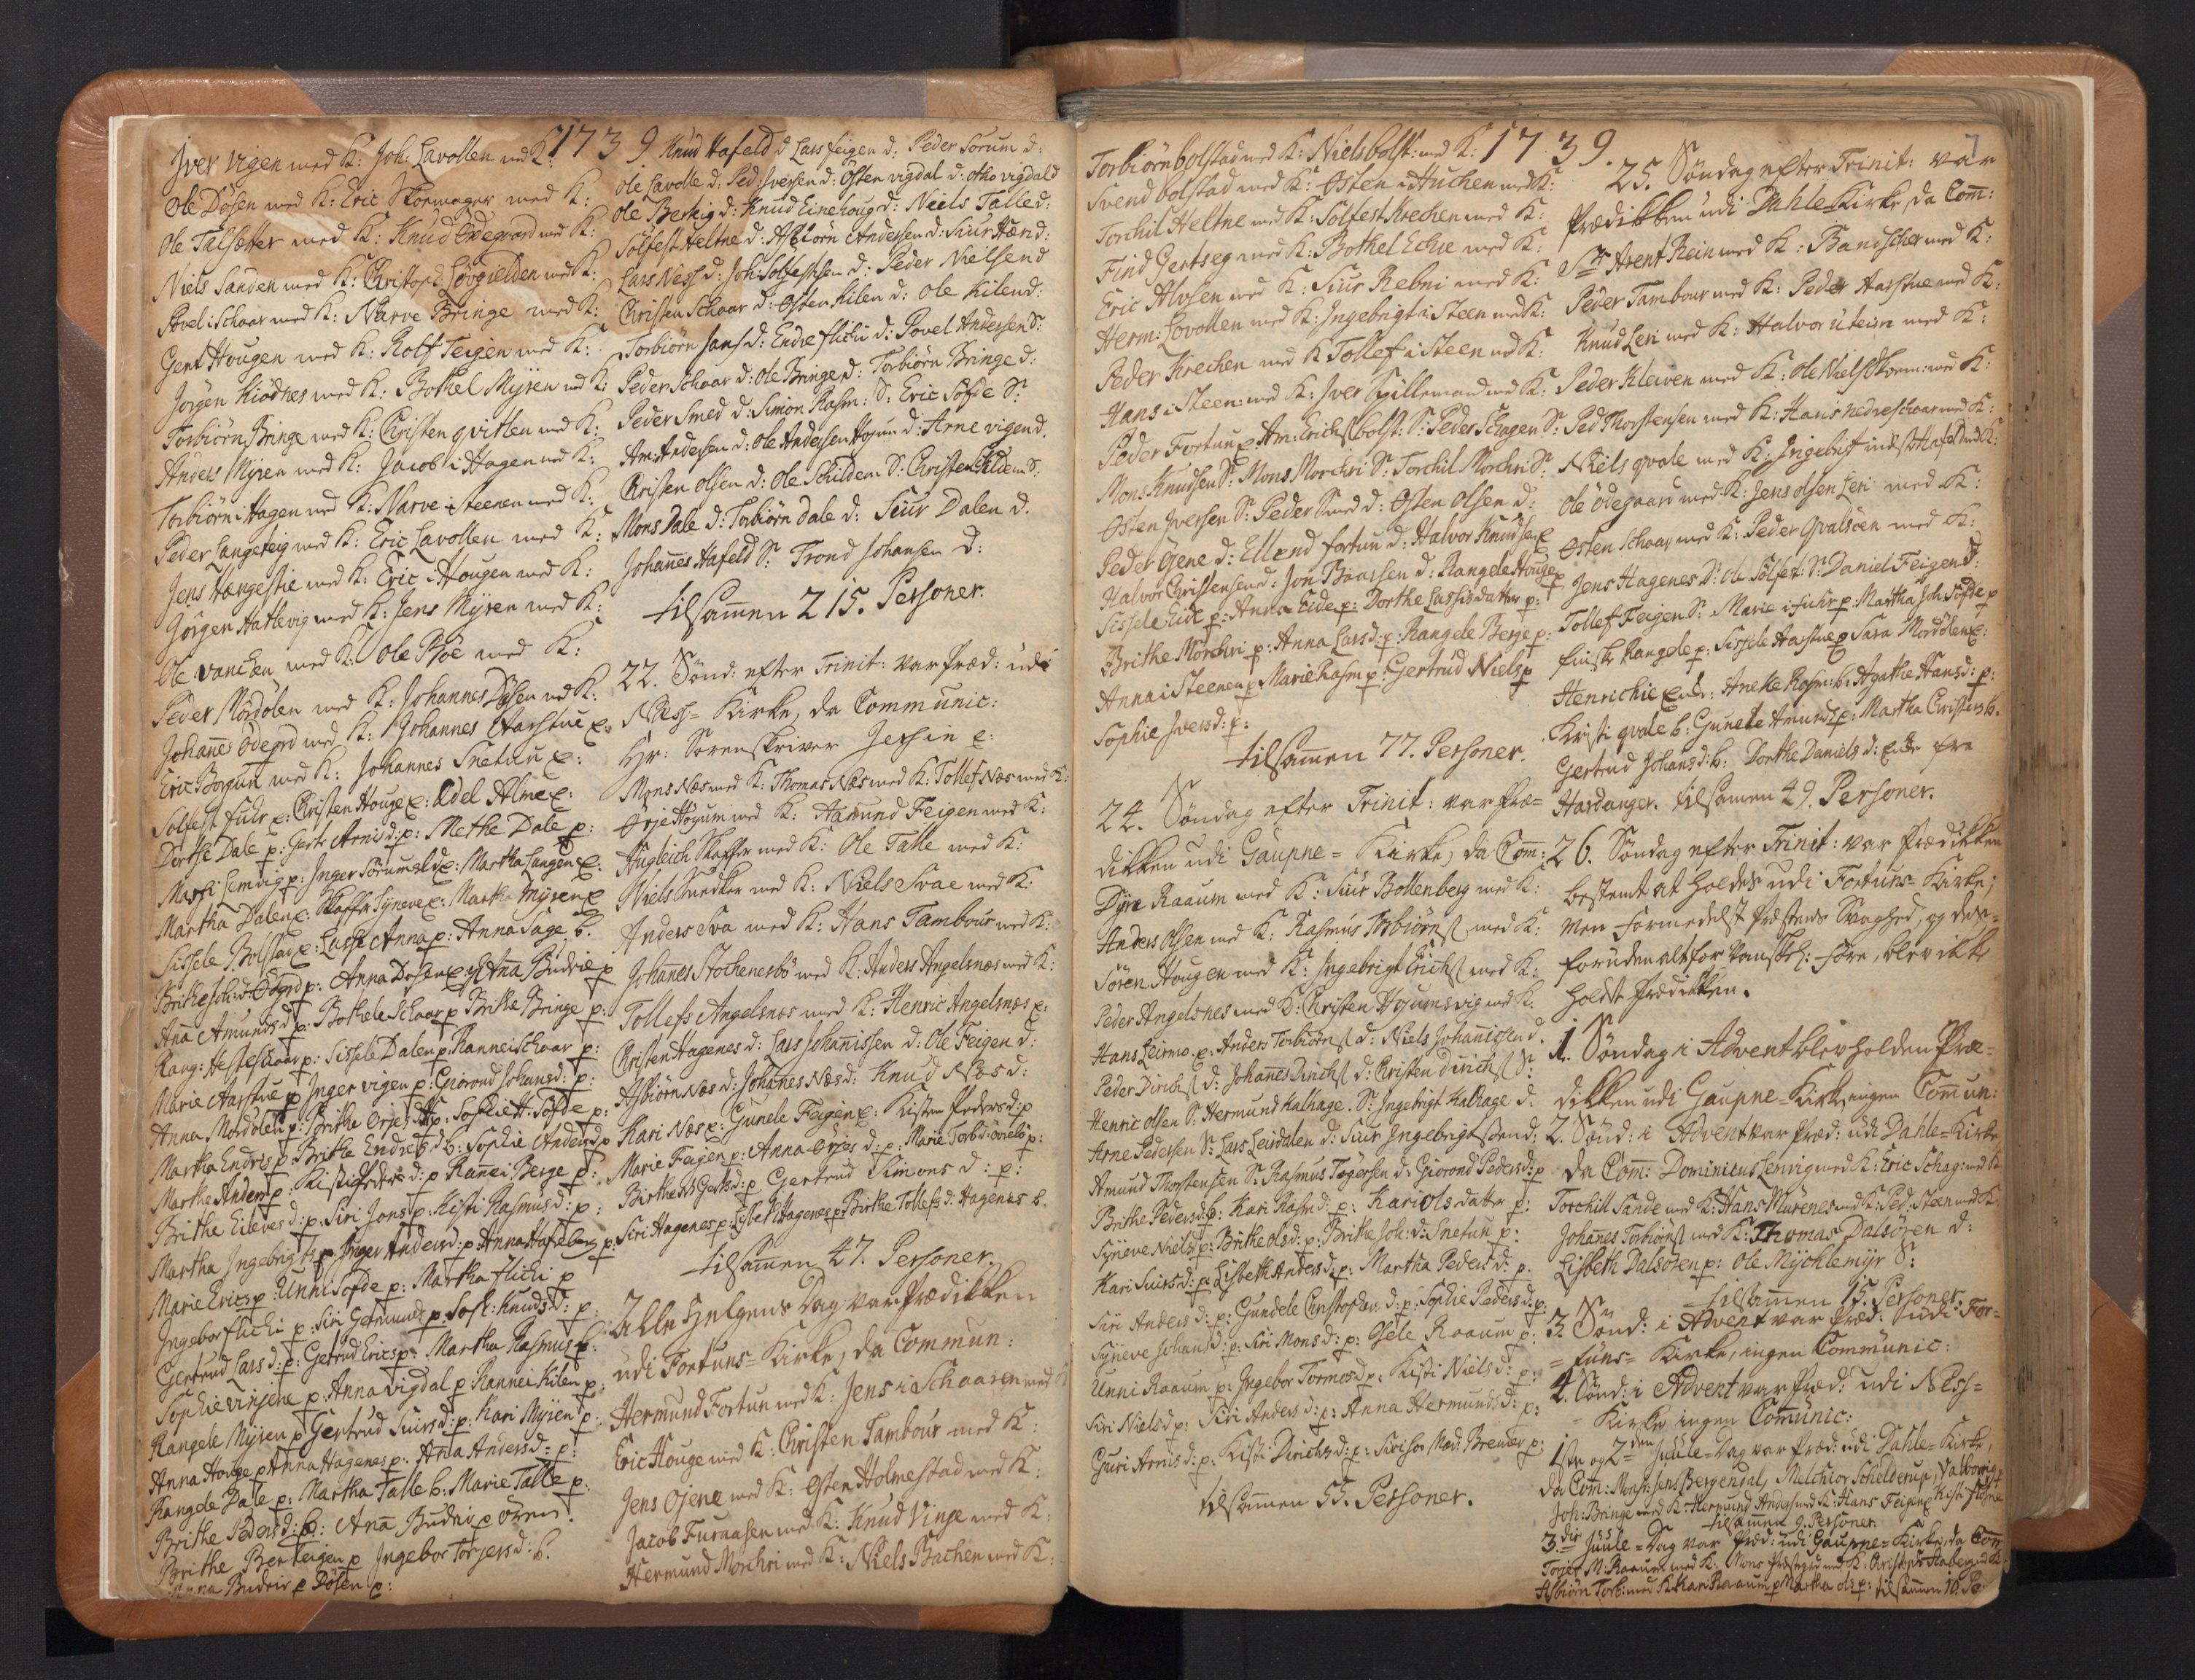 1739.
Iver Vigen med K: Joh: Lavollen med K:
Ole Døsen med K: Eric Skomager med K:
Ole Talsætter med K: Knud Ødegaard med K:
Niels Sanden med K: Christoph Løvgielden med K:
Povel i Schaar med K: Narve Bringe med K:
Gert Hougen med K: Rolf Teigen med K:
Jørgen Kiødnes med K: Bothel Myren med K:
Torbiørn Bringe med K: Christen qvitlen med K:
Anders Myren med K: Jacob i Hagen med K:
Torbiørn i Hagen med K: Narve i Steenen med K:
Peder Langeteig med K: Eric Lavollen med K:
Jens Hængestie med K: Eric i Hougen med K:
Jørgen Hatlevig med K: Jens Myren med K:
Ole Vanchen med K: Ole Bøe med K:
Peder Mordølen med K: Johannes Døsen med K:
Johanes Ødegrd med K: Johannes Aarstue
Eric Borgun med K: Johannes Snetun
Solfest Fuhr Christen Houge Adel Alme
Dorthe Dale p: Gertr Arnisd: p: Methe Dale p:
Marthi Lemvig p: Inger Sørum Martha Langen
Martha Dalen Skaffer Synneve Martha Myren
Sissele Bolstad Lasse Anna p: Anna Sage b.
Brithe Joh:d: Ødgrd p: Anna Døsen Anna Budeie p
Ana Amundsd p: Bothele Schaar p Brithe Bringe p:
Rang: Hesteschaar p: Sissele Dalen p: Rannei schoar p:
Marie Aarstue p Inger Vigen p: Giørond Johansd: p:
Anna Mordølen p: Brithe Orjesd p: Sophie H: Søfde p:
Martha Endres p Brithe Endresd b: Sophie Andersd p
Marthe Anders p: Kisti Peders d: p Rannei Berge p:
Brithe Eileves d: p: Siri Jons p: Kisti Rasmus d: p:
Martha Ingebrigts p Inger Anders d: p Anna Hafeberg p:
Marie Erics p: Unni Søfde p: Martha flichi p
Ingebor flichi p: Siri Getmunds p: Soph: Knuds d: p:
Gertrud Lars d: p: Getrud Erics p: Martha Rasmus b:
Sophie Vinjene p: Anna Vigdal p Rannei Kilen p:
Rangele Myren p Gertrud Siurs d: p: Kari Myren p:
Anna Houge p Anna Hagenes p: Anna Anders d: p:
Rangele Dale p: Martha Talle b: Marie Talle p:
Brithe Peders d: b: Ana Budeie p Øren.
Brithe Berteigen p Ingebor Torjers d: b.
Anna Budeie p Døsen p:
Knud Hafeld d Lars feigen d: Peder Sorum d:
Ole Lavolle d: Ped: Iversen d: Østen vigdal d: Otho vigdal d
Ole Berteig d: Knud Einehoug d: Niels Talle d:
Solfest Heltne d: Asbiørn Andersen d: Siur Hænd:
Lars Ness d: Joh: Solfestsen d: Peder Nielsen d
Christen Schaar d: Østen Kilen d: Ole Kilen d:
Torbiørn Jans d: Endre flichi d: Povel Andersen S:
Peder Schaar d: Ole Bringe d: Torbiørn Bringe d:
Peder Smed d: Simon Rasm: S: Eric Søfde S:
Am: Andersen d: Ole Andersen Høium d: Arne vigen d.
Christen Olsen d: Ole Schildem S: Christen Schildem S.
Mons Dale d: Torbiørn dale d: Siur Dalen d.
Johanes Hafeld S: Trond Johansen d:
tilsamen 215. Personer.
22. Sønd: efter Trinit: var Præd: udi
Næss=Kirke, da Communic:
Hr: Sorenskriver Jersin
Mons Næs med K: Thomas Næs med K: Tollef Næs med K:
Ørje Høyum med K: Hamund Feigen med K:
Hugleich Skaffer med K: Ole Talle med K:
Niels Snedker med K: Niels Svae med K:
Anders Sva med K: Hans Tambour med K:
Johanes Stochenesbø med K: Anders Angelsnæs med K:
Tollefs Angelsnæs med K: Henric Angelsnæs
Christen Hagenes d: Lars Johannissen d: Ole Feigen d:
Asbiørn Næs d: Johanes Næs d: Knud Næs d:
Kari Næs Gunele Feigen Kisten Peders d: p
Marie Feigen p: Anna Orjes d: p: Marie Torb:
Birthe Gertsd: p Gertrud Simons d: p:
Siri Hagenes p: Lisbeth Hagenes p: Birthe Tollefs d: Hagenes b.
tilsamen 47. Personer.
Alle Helgens Dag var Prædikken
udi Fortuns=Kirke, da Commun:
Hermund Fortun med K: Jens i Schaaren med K
Eric Houge med K: Christen Tambour med K:
Jens Ojene med K: Østen Holmestad med K:
Jacob Furaasen med K: Knud Vinje med K:
Hermund Morchri med K: Niels Bachen med K:
1739.
7
Torbiørn bolstad med K: Niels bolst: med K:
Svend bolstad med K: Østen i Huchen med K:
Torchil Heltne med K: Solfest Krechen med K:
Find Gertseg med K: Bothel Echre med K:
Eric Alvsen med K: Siur Rebni med K:
Herm: Lovollen med K: Ingebrigt i Steen med K:
Peder Krechen med K Tollef i Steen med K:
Hans i Steen med K: Iver Spillemand med K:
Peder Fortun Am: Erichs bolst: S: Peder Schagen S:
Mons Knudsen S: Mons Morchri S: Torchil Morchri S:
Østen Iversen S: Peder Smed d: Østen Olsen d:
Peder Øjene d: Ellend fortun d: Halvor Knudsen
Halvor Christensen d: Jon Baarsen d: Rangele Houge p
Sissele Eide p: Anna Eide p: Dorthe Lassisdatter p:
Brithe Morchri p: Anna Larsd: p: Rangele Berge p:
Anna i Steenen p: Marie Rasm p: Gertrud Niels p
Sophie Ivers d: p:
tilsamen 77. Personer.
24. Søndag efter Trinit: var Præ=
dikken udi Gaupne=Kirke, da Com:
Dyre Raaum med K: Siur Bollenberg med K:
Anders Olsen med K: Rasmus Torbiørns med K:
Søren Hougen med K: Ingebrigt Erichs med K:
Peder Angelsnes med K: Christen Høyumsvig med K:
Hans Leirmo Anders Torbiørns d: Niels Johanissen d.
Peder Dirichs d: Johanes Dirichs d: Christen Dirichs S:
Henric Olsen S: Hermund Kalhage S: Ingebrigt Kalhage d:
Arne Pedersen S: Lars Leirdalen d: Siur Ingebrigtsen d:
Amund Thorstensen S: Rasmus Togersen d: Giørond Pedersd: p
Brithe Pedersd: b: Kari Rasm d: p: Kari Olsdatter p:
Syneve Niels d p: Brithe Ols d: p: Brithe Joh: d: Snetun p:
Kari Siurs d: p: Lisbeth Anders d: p: Martha Peders d: p:
Siri Anders d: p: Gundele Christophers d: p: Sophie Peders d: p:
Syneve Johans d: p: Siri Mons d: p: Gsele Raaum p:
Unni Raaum p: Ingebor Tormos d p: Kisti Niels d: p:
Siri Niels d p: Siri Anders d: p: Anna Hermunds d: p:
Guri Arnis d: p: Kisti Dirichs d: p:
tilsamen 55. Personer.
25. Søndag efter Trinit: var
Prædikken udi Dahle=Kirke, da Com:
Sr Arent Rein med K: Bandscher med K:
Peder Tambour med K: Peder Aarstue med K:
Knud Leri med K: Halvor Uteim med K:
Peder Kleiven med K: Ole Niels Skom: med K:
Ped Thorstensen med K: Hans nedreschaar med K:
Niels qvale med K: Ingebrit Hafeld med K:
Ole Ødegaard med K: Jens Olsen Leri med K:
Østen Schaar med K: Peder Qvalsøen med K:
Jens Hagenes S: Ole Solfest: S: Daniel Feigen d:
Tollef Feigen S: Marie i fuhr p: Martha Joh: Søfde p
finske Rangele p: Sissele Aarstue p Sara Mordølen
Henrichie Aneke Rasm: b: Agathe Hans d: p:
Kristi qvale b: Gunele Amunds p: Martha Christens b.
Gertrud Johans d: b: Dorthe Daniels d: fra
Hardanger. tilsamen 49. Personer.
26. Søndag efter Trinit: var Prædikken
bestemt at holdes udi Fortuns=Kirke;
men formedelst Præstens Svaghed, og des=
foruden alt for vanskel: føre, blev ikke
holdt Prædikken.
1. Søndag i Advent blev holden Præ=
dikken udi Gaupne=Kirke, ingen Comun:
2. Sønd: i Advent var Præd: udi Dahle=Kirke
da Com: Dominicus Lemvig med K: Eric Schag: med K
Torchill Sande med K: Hans Mørenes med K: Ped: Steen med K:
Johanes Torbiørns med K: Thomas Dalsøren d:
Lisbeth Dalsøren p: Ole Mychlemyr S:
tilsamen 15. Personer.
3. Sønd: i Advent var Præd: udi For=
=tuns=Kirke, ingen Communic:
4. Sønd: i Advent var Præd: udi Ness=
Kirke, ingen Comunic:
1ste og 2den Juule=Dag var Præd: udi Dahle=Kirke,
da Com: Mons: Jens Bergendal, Melchior Schelderup, Valborrig
Joh: Bringe med K: Hermund Anders med K: Hans Feigen
tilsamen 9. Personer.
3die Juule=Dag var Præd: udi Gaupne=Kirke, da Com
Torjer N: Raaum med K: Mons med K:
Asbiørn Torb: med K Kari Raaum p Martha Ols p: tilsamen 10. Pe